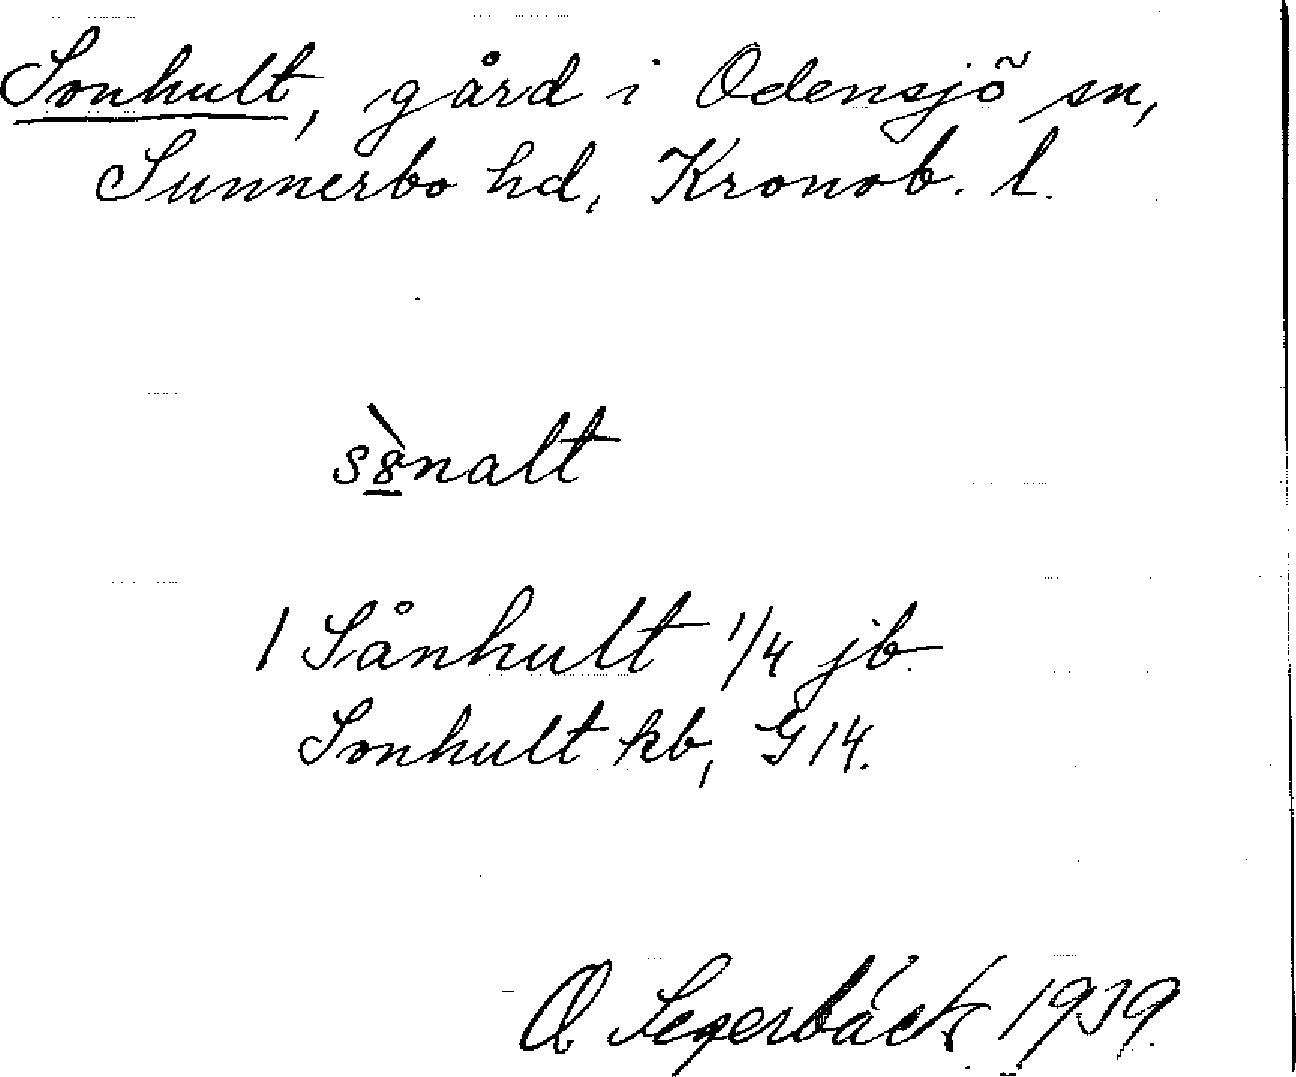 Sonhult, gård i Odensjö sn,
Sunnerbo hd, Kronob. l.
s8̱̀nalt
1 Sånhult 1/4 jb.
Sonhult kb, G14.
O Segerbäck 1939